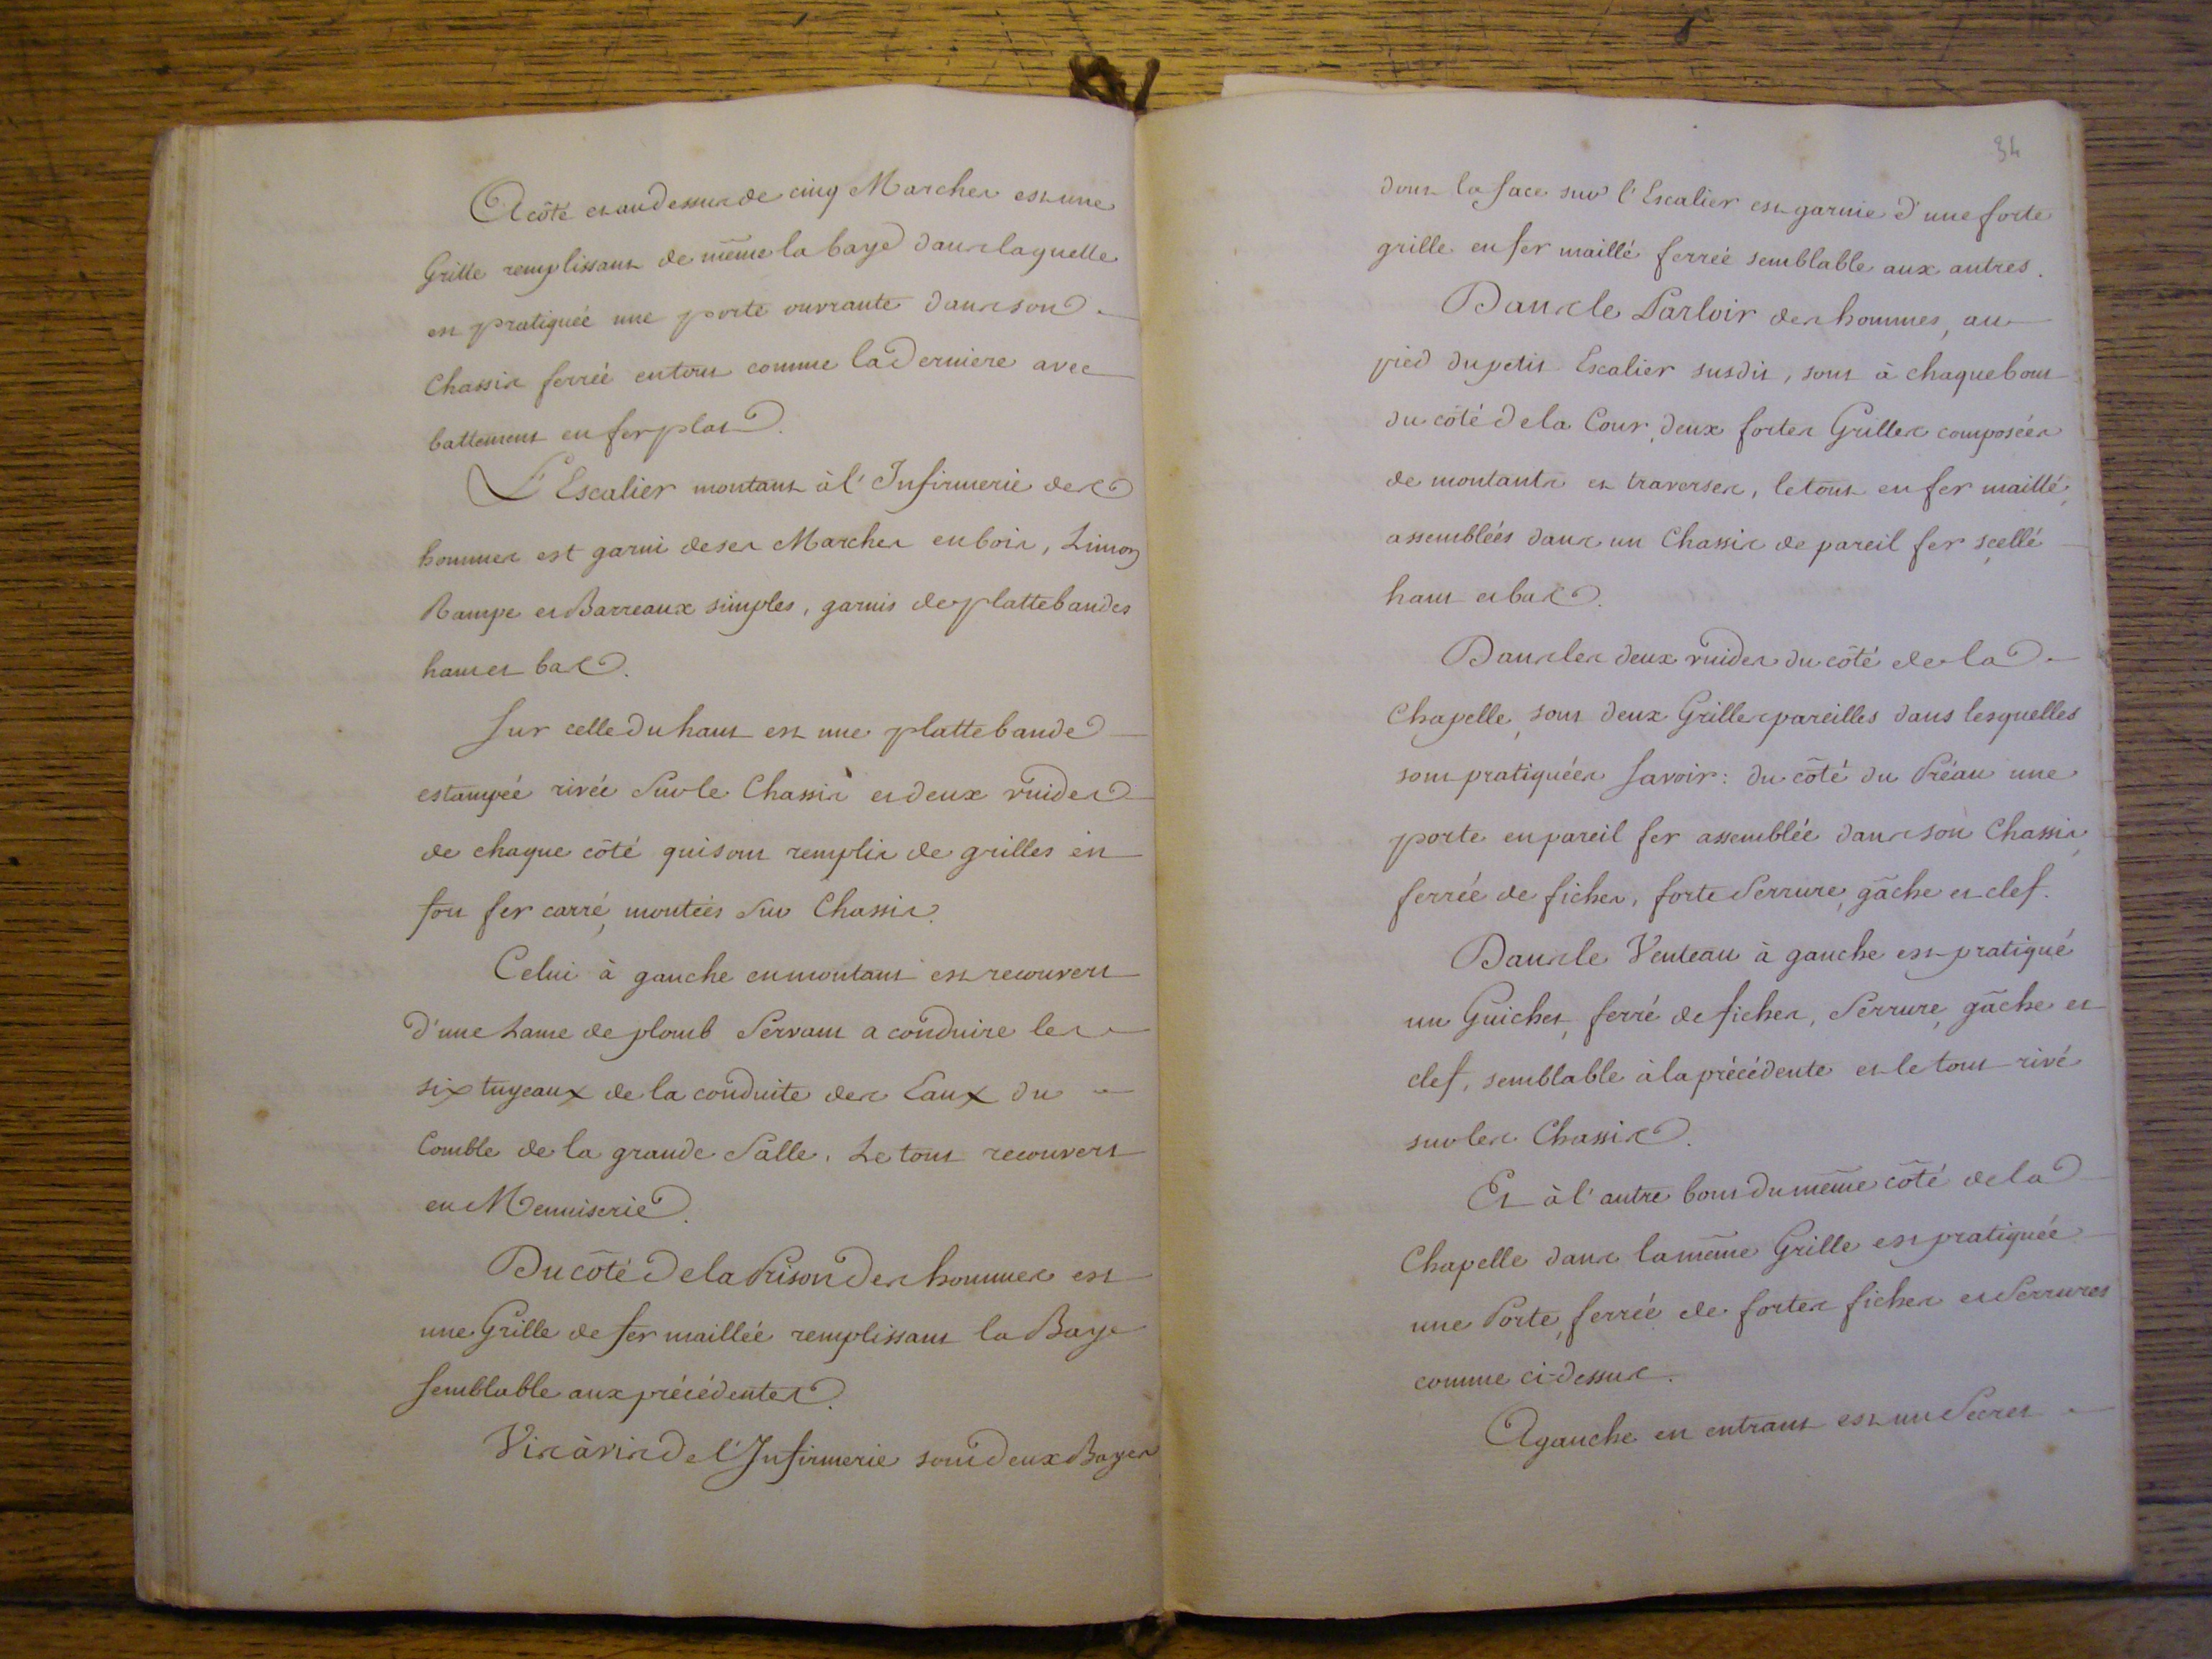 A côté et au dessus de cinq Marches est une
Grille remplissant de même la baye dans laquelle
est pratiquée une porte ouvrante dans son
Chassis ferrée en tout comme la derniere avec
battement en fer plat.
L'Escalier montant à l'Infirmerie des
hommes est garni de ses Marches en bois, Limon
Rampe et Barreaux simples, garnis de plattebandes
haut et bas.
Sur celle du haut est une plattebande
estampée rivée sur le Chassis et deux vuides
de chaque côté qui sont remplis de grilles en
fort fer carré, montées sur Chassis.
Celui à gauche en montant est recouvert
d'une Lame de plomb Servant a conduire les
six tuyeaux de la conduite des Eaux du
Comble de la grande Salle. Le tout recouvert
en Menuiserie.
Du côté de la Prison des hommes est
une Grille de fer maillée remplissant la Baye
semblable aux précédentes.
Vis à vis de l'Infirmerie sont deux Bayes
34
dont la face sur l'Escalier est garnie d'une forte
grille en fer maillé ferrée semblable aux autres.
Dans le Parloir des hommes, au
pied du petit Escalier susdit, sont à chaque bout
du côté de la Cour, deux fortes Grilles composées
de montants et traverses, le tout en fer maillé,
assemblées dans un Chassis de pareil fer scellé
haut et bas.
Dans les deux vuides du côté de la
Chapelle, sont deux Grilles pareilles dans lesquelles
sont pratiquées Savoir: du côté du Préau une
porte en pareil fer assemblée dans son Chassis,
ferrée de fiches, forte Serrure, gâche et clef.
Dans le Venteau à gauche est pratiqué
un Guichet, ferré de fiches, Serrure, gâche et
clef, semblable à la précédente et le tout rivé
sur les Chassis.
Et à l'autre bout du même côté de la
Chapelle dans la même Grille est pratiquée
une Porte, ferrée de fortes fiches et Serrures
comme ci-dessus.
A gauche en entrant est un Secret